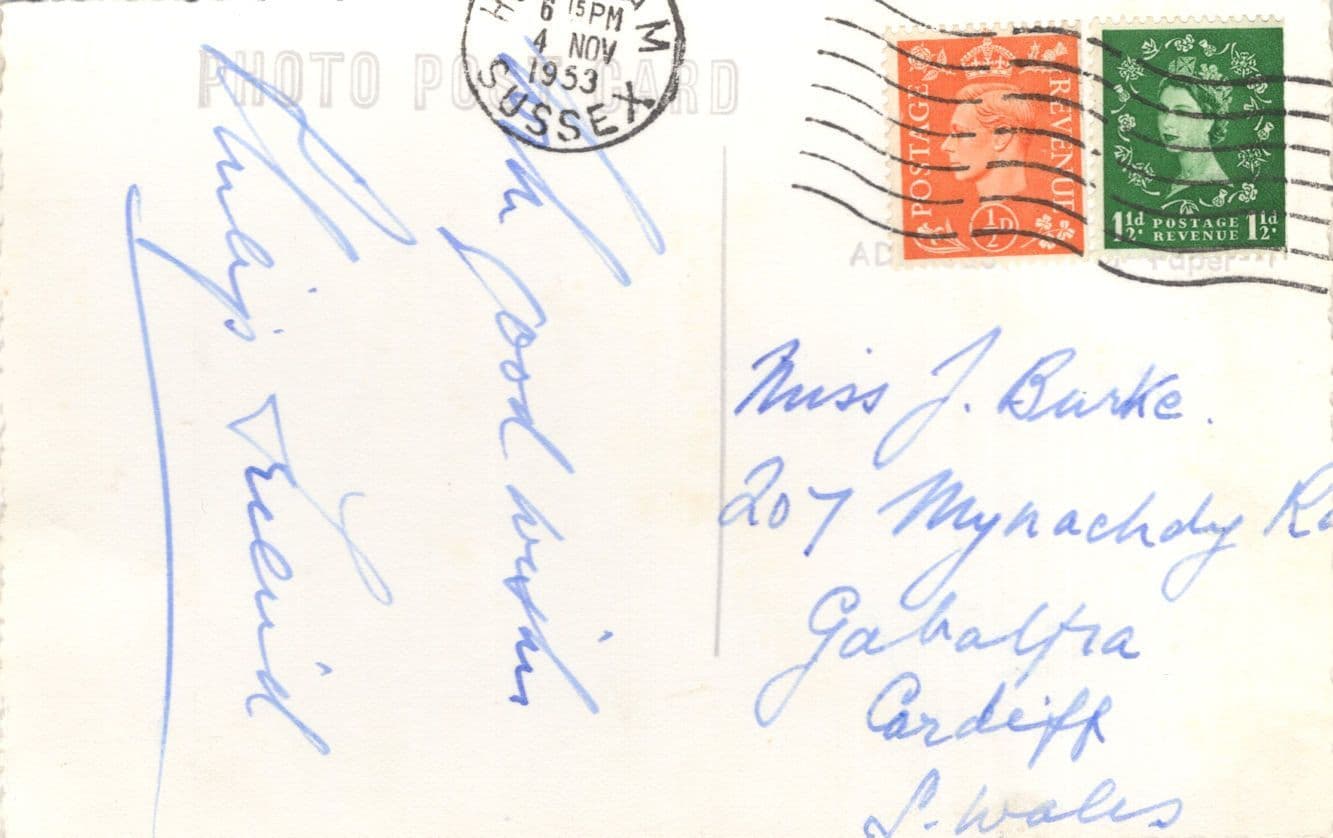 PHOTO POST CARD
6 15 PM
4 NOV
1953
SUSSEX
POSTAGE REVENUE
½D
1½d. POSTAGE REVENUE 1½d.
With
Good wishes
Philip
Miss J. Burke.
207 Mynachdy
Gabalfa
Cardiff
S. Wales